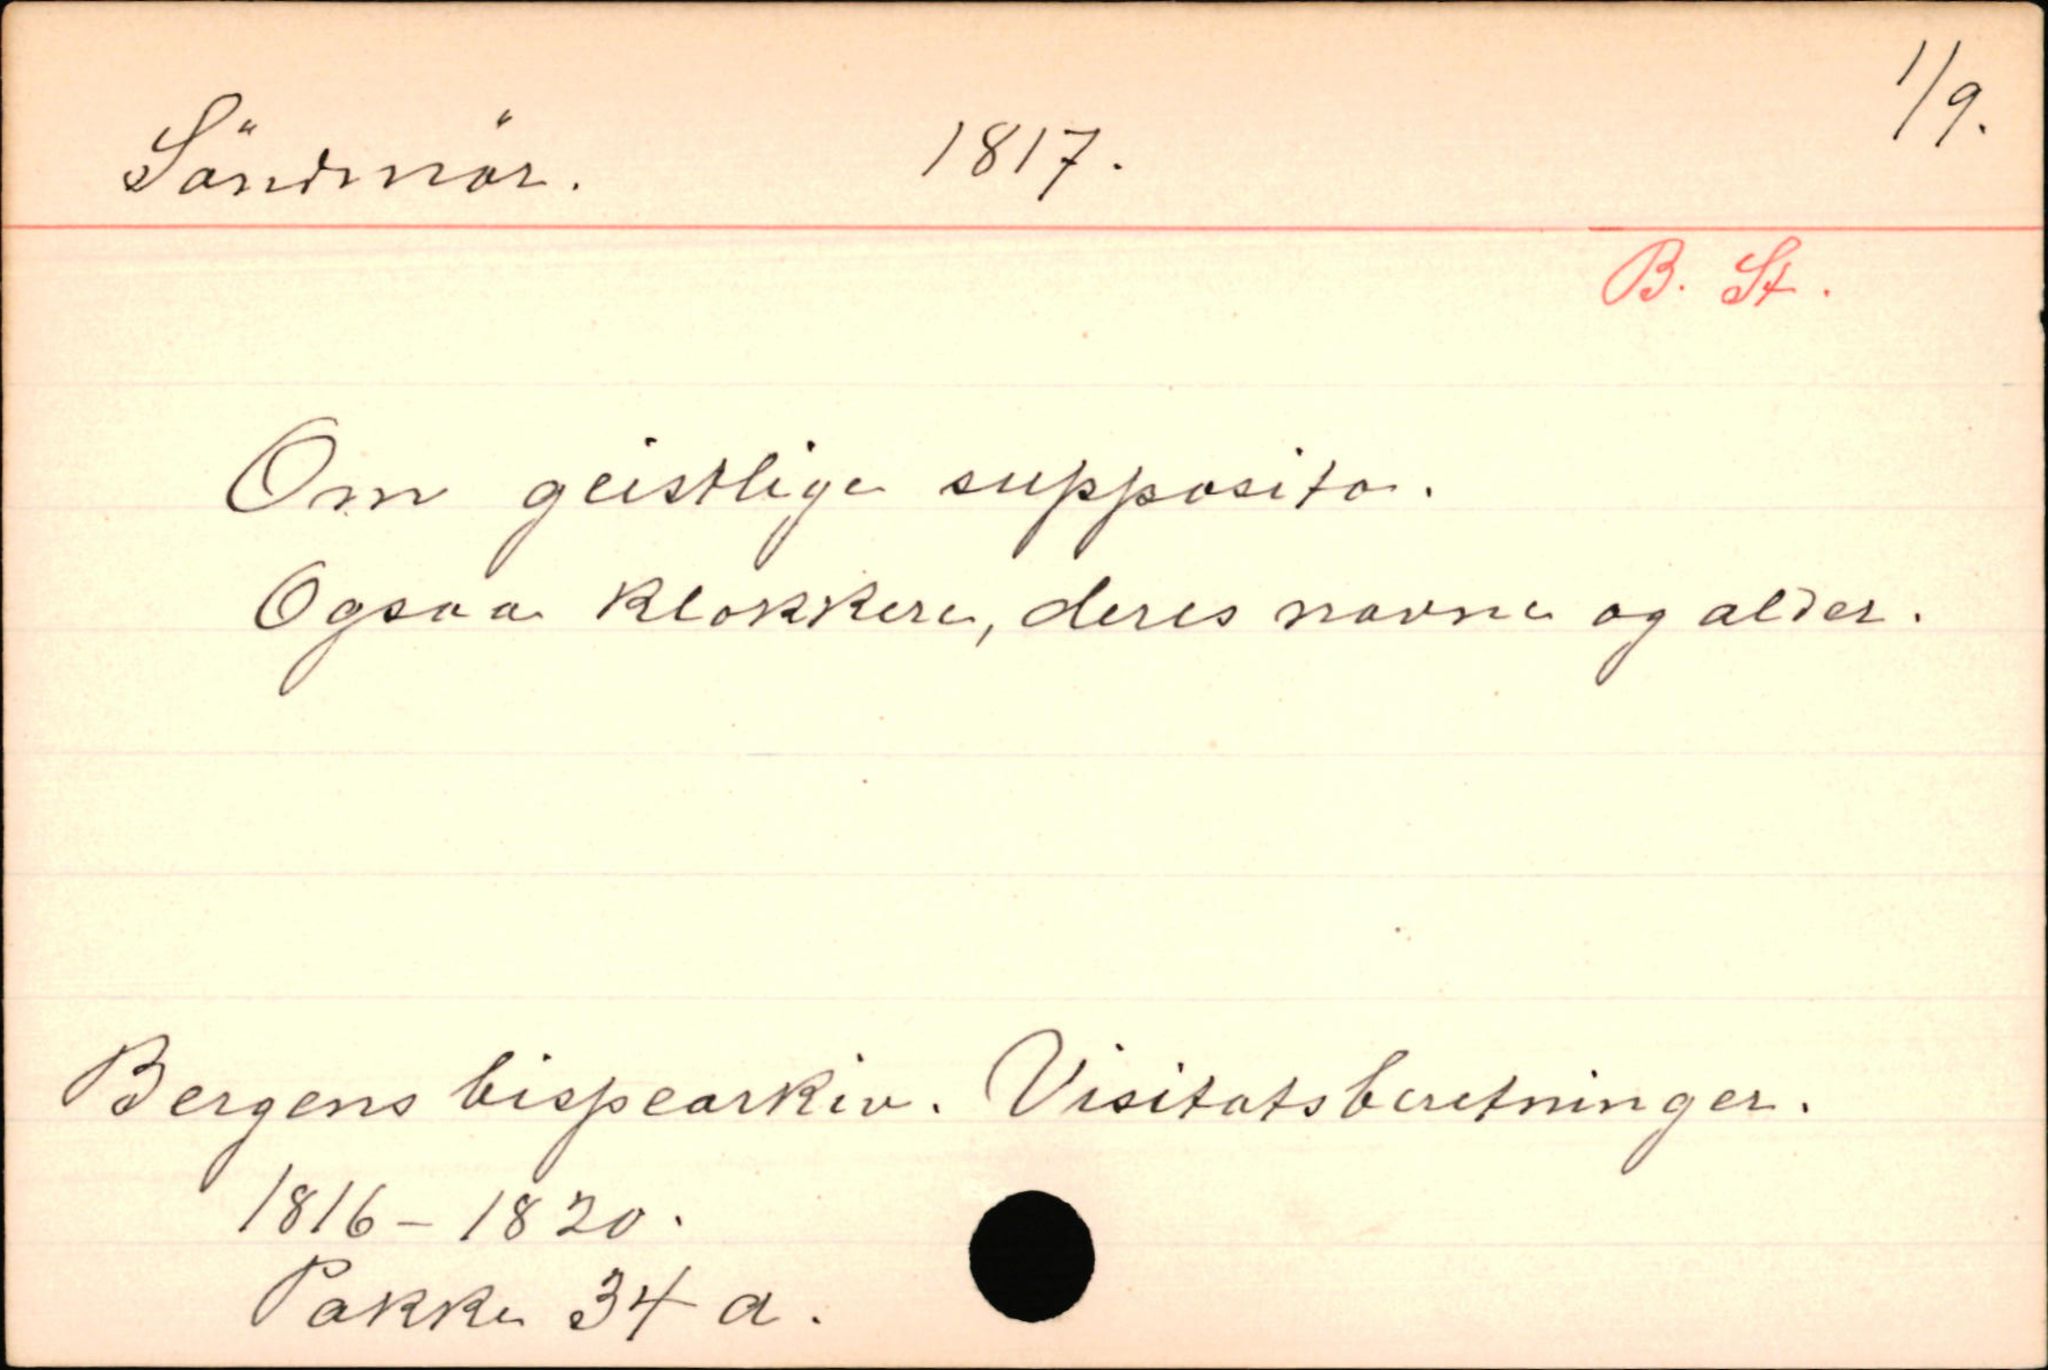 Söndmör. 1817. 1/9.
B. St.
Om geistlige supposita.
Ogsaa klokkere, deres navne og alder.
Bergens bispearkiv. Visitatsberetninger.
1816-1820.
Pakke 34 a.